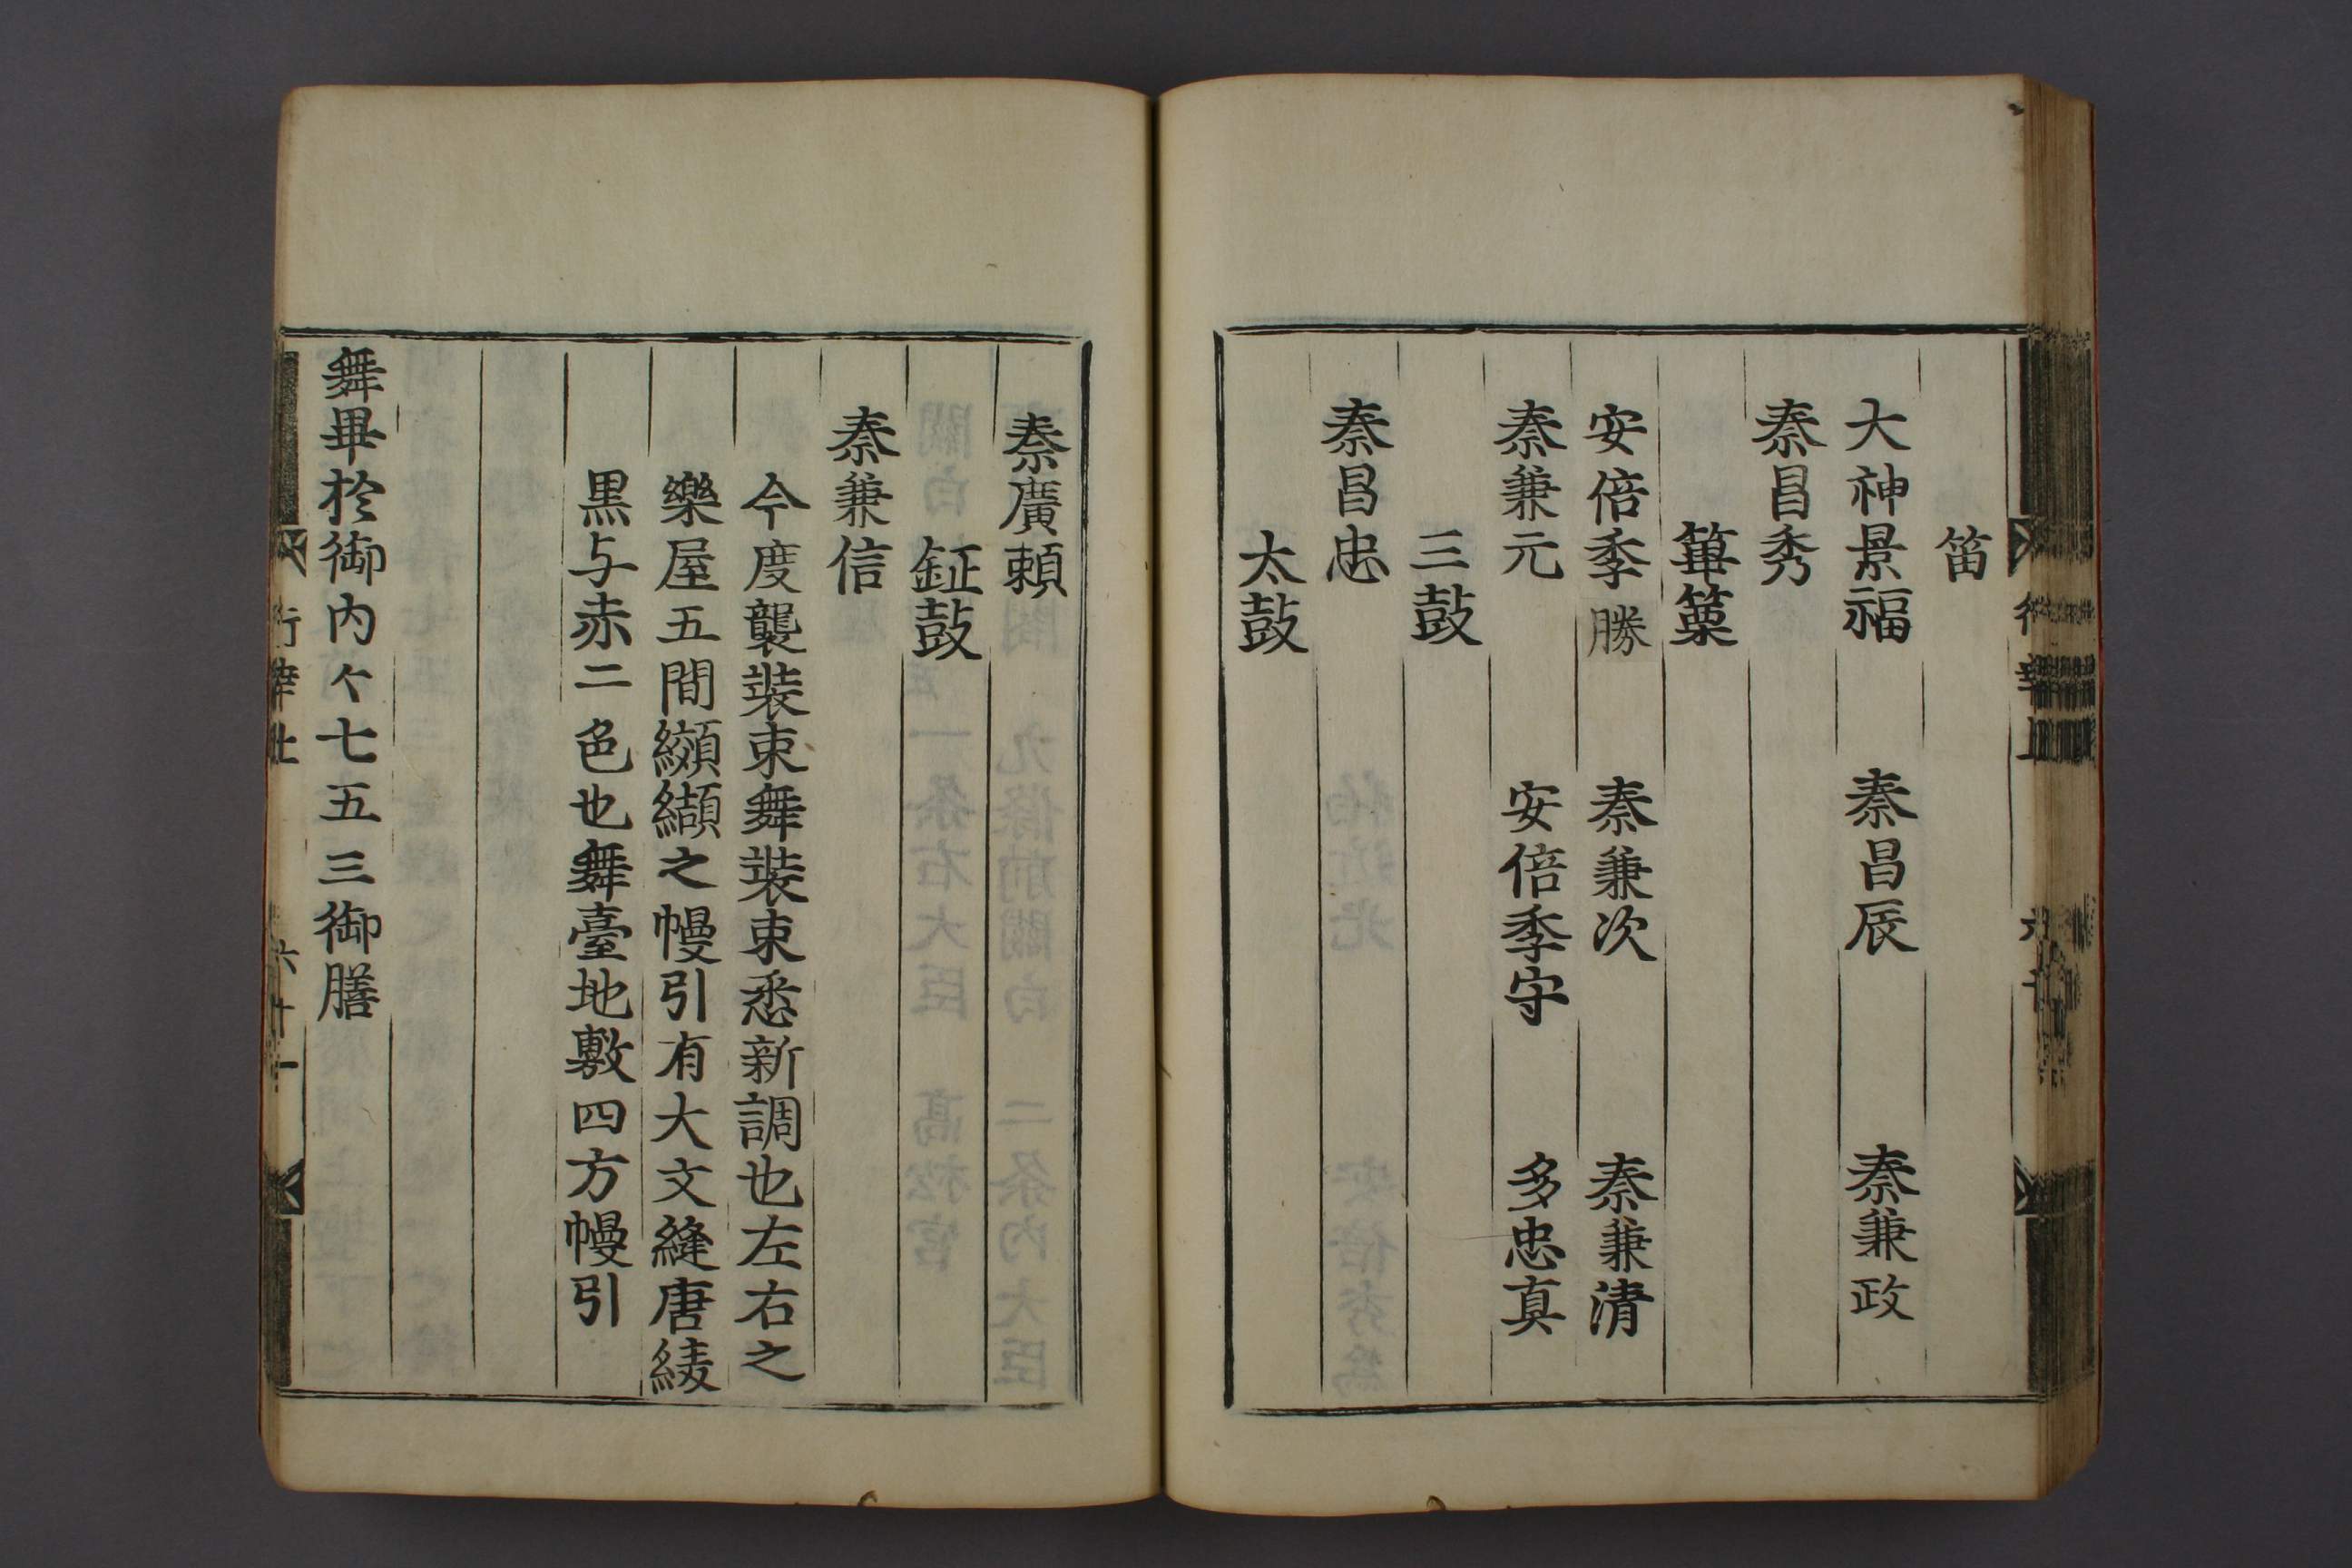 笛
大神景福　秦昌辰　秦兼政
秦昌秀
篳篥
安倍季勝　秦兼次　秦兼清
秦兼元　安倍季守　多忠真
三鼓
秦昌忠
太鼓
秦廣頼
鉦鼓
秦兼信
今度襲裝束舞裝束悉新調也左右之
樂屋五間纐纈之幔引有大文縫唐綾
黒与赤二色也舞臺地敷四方幔引
舞畢於御内々七五三御膳
行幸上　六十一